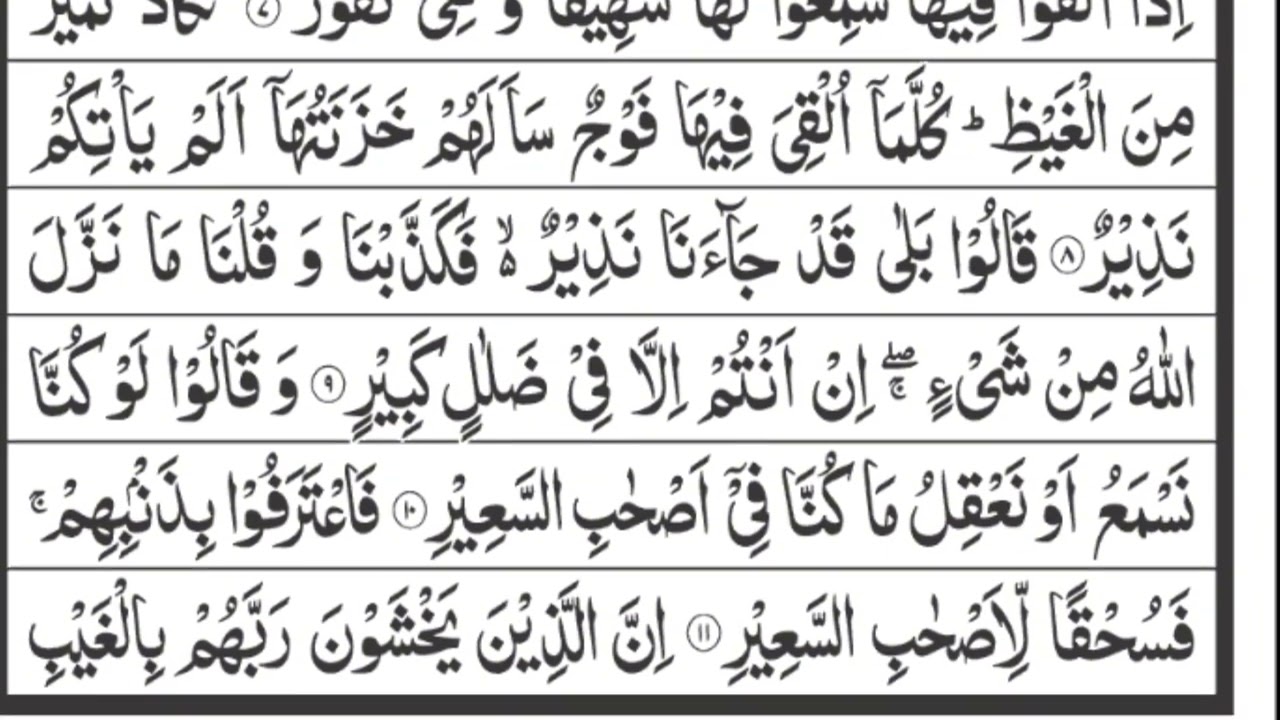 اِذَاۤ اُلْقُوْا فِیْهَا سَمِعُوْا لَهَا شَهِیْقًا وَّ هِیَ تَفُوْرُ ۷ تَكَادُ تَمَیَّزُ
مِنَ الْغَیْظِ ؕ كُلَّمَاۤ اُلْقِیَ فِیْهَا فَوْجٌ سَاَلَهُمْ خَزَنَتُهَاۤ اَلَمْ یَاْتِكُمْ
نَذِیْرٌ ۸ قَالُوْا بَلٰی قَدْ جَآءَنَا نَذِیْرٌ ۵ۙ فَكَذَّبْنَا وَ قُلْنَا مَا نَزَّلَ
اللّٰهُ مِنْ شَیْءٍ ۚۖ اِنْ اَنْتُمْ اِلَّا فِیْ ضَلٰلٍ كَبِیْرٍ ۹ وَ قَالُوْا لَوْ كُنَّا
نَسْمَعُ اَوْ نَعْقِلُ مَا كُنَّا فِیْۤ اَصْحٰبِ السَّعِیْرِ ۱۰ فَاعْتَرَفُوْا بِذَنْۢبِهِمْ ۚ
فَسُحْقًا لِّاَصْحٰبِ السَّعِیْرِ ۱۱ اِنَّ الَّذِیْنَ یَخْشَوْنَ رَبَّهُمْ بِالْغَیْبِ